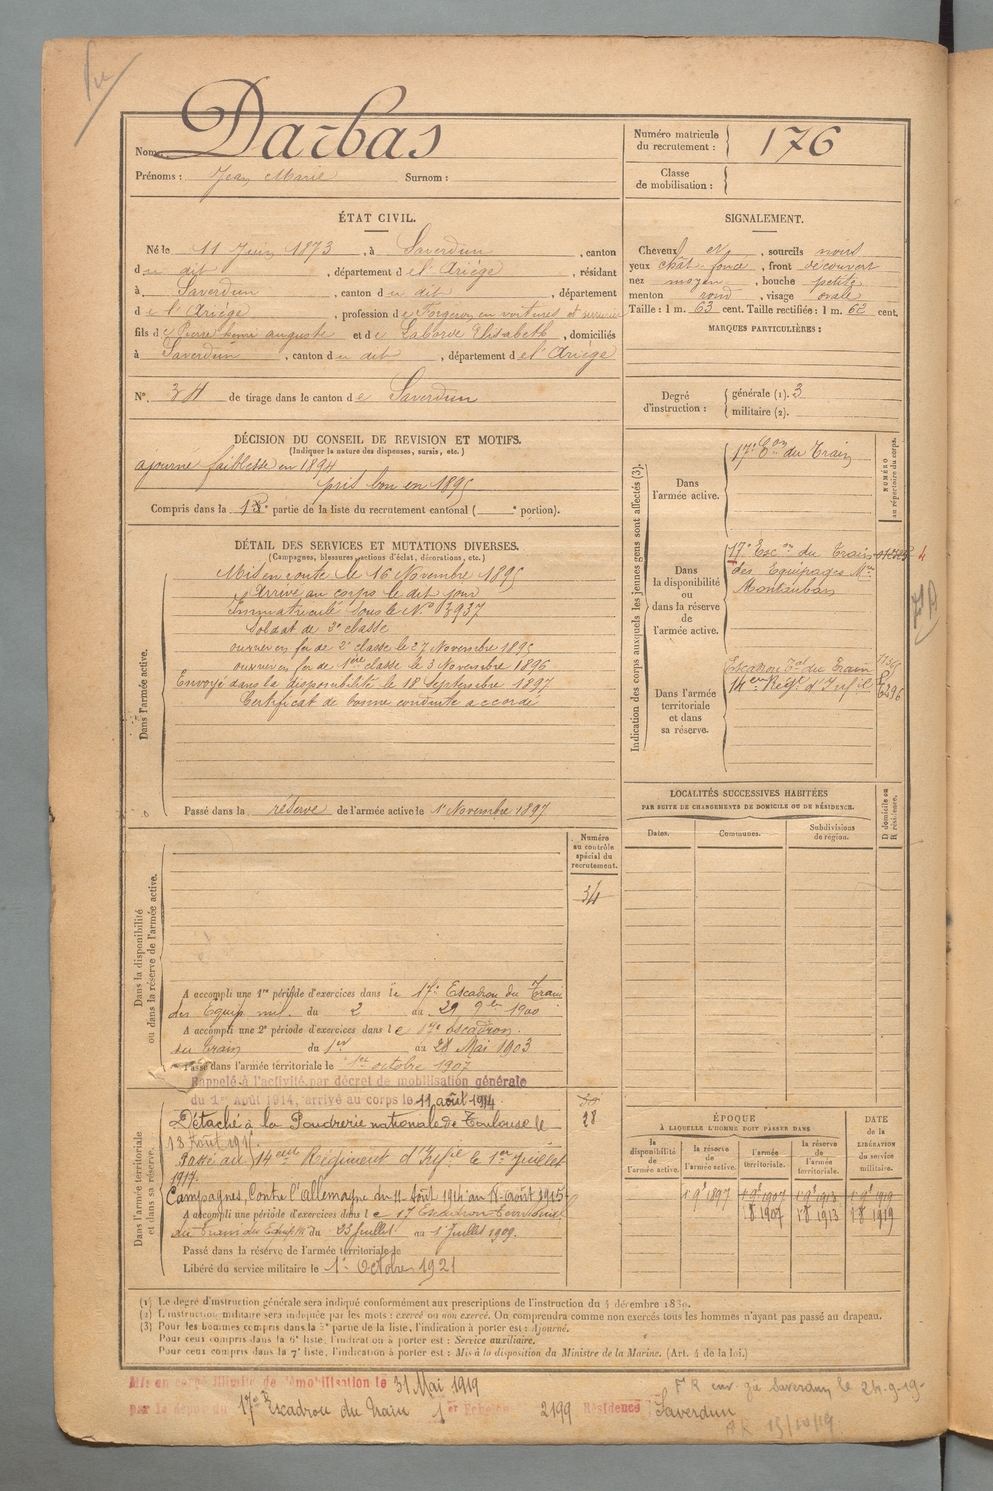 Vu
Nom : Darbas
Prénoms : Jean Marie Surnom :
Numéro matricule du recrutement : 176
Classe de mobilisation :
ÉTAT CIVIL.
Né le 11 Juin 1873, à Saverdun, canton
du dit, département de l'Ariège, résidant
à Saverdun, canton du dit, département
de l'Ariège, profession de Forgeron en voitures et serrurier
fils de Pierre henri auguste et de Laborde Elisabeth, domiciliés
à Saverdun, canton du dit, département de l'Ariège
N° 34 de tirage dans le canton de Saverdun
SIGNALEMENT.
Cheveux et, sourcils noirs
yeux chât. foncé, front découvert
nez moyen, bouche petite
menton rond, visage ovale
Taille : 1 m. 63 cent. Taille rectifiée : 1 m. 62 cent.
MARQUES PARTICULIÈRES :
Degré d'instruction :
générale (1). 3
militaire (2).
DÉCISION DU CONSEIL DE REVISION ET MOTIFS.
(Indiquer la nature des dispenses, sursis, etc.)
ajourné faiblesse en 1894
pris bon en 1895
Compris dans la partie de la liste du recrutement cantonal ( ° portion).
DÉTAIL DES SERVICES ET MUTATIONS DIVERSES.
(Campagnes, blessures, actions d'éclat, décorations, etc.)
Dans l'armée active.
Mis en route le 16 Novembre 1895
Arrivé au corps le dit jour
Immatriculé sous le N° 3937
Soldat de 2e classe
ouvrier en fer de 2e classe le 27 Novembre 1895
ouvrier en fer de 1ère classe le 3 Novembre 1896
Envoyé dans la disponibilité le 18 Septembre 1897
Certificat de bonne conduite accordé
Passé dans la réserve de l'armée active le 1er Novembre 1897
Indication des corps auxquels les jeunes gens sont affectés (3).
NUMÉRO au répertoire du corps.
Dans l'armée active.
17e Eon du Train
Dans la disponibilité ou dans la réserve de l'armée active.
17e Escon du Train
des Equipages Mres
Montauban
Dans l'armée territoriale et dans sa réserve.
Escadron Tal du Train
14em Régt d'Infie
LOCALITÉS SUCCESSIVES HABITÉES
PAR SUITE DE CHANGEMENTS DE DOMICILE OU DE RÉSIDENCE.
Dates. Communes. Subdivisions de région. D domicile ou R résidence.
Numéro au contrôle spécial du recrutement.
34
Dans la disponibilité ou dans la réserve de l'armée active.
A accompli une 1re période d'exercices dans le 17e Escadron du Train
des Equip. mil. du 2 au 29 9bre 1900
A accompli une 2e période d'exercices dans le 17e escadron
du Train du 1er au 28 Mai 1903
Passé dans l'armée territoriale le 1er octobre 1907
Rappelé à l'activité par décret de mobilisation générale
du 1er Août 1914, arrivé au corps le 11 août 1914
28
Dans l'armée territoriale et dans sa réserve.
Détaché à la Poudrerie nationale de Toulouse le
13 Août 1915.
Passé au 14eme Régiment d'Infie le 1er Juillet
1917.
Campagnes, Contre l'allemagne du 11 Août 1914 au août 1915
A accompli une période d'exercices dans le 17 Escadron Territorial
du Train des Equip. du 23 Juillet au 1er Juillet 1909.
Passé dans la réserve de l'armée territoriale le
Libéré du service militaire le 1er Octobre 1921
ÉPOQUE
À LAQUELLE L'HOMME DOIT PASSER DANS
la disponibilité de l'armée active. la réserve de l'armée active. l'armée territoriale. la réserve de l'armée territoriale. DATE de la LIBÉRATION du service militaire.
1 9e 1897 1 9e 1907 1 9e 1913 1 9e 1919
1907 1913 1919
(1) Le degré d'instruction générale sera indiqué conformément aux prescriptions de l'instruction du 4 décembre 1889.
(2) L'instruction militaire sera indiquée par les mots : exercé ou non exercé. On comprendra comme non exercés tous les hommes n'ayant pas passé au drapeau.
(3) Pour les hommes compris dans la 5e partie de la liste, l'indication à porter est : Ajourné.
Pour ceux compris dans la 6e liste, l'indication à porter est : Service auxiliaire.
Pour ceux compris dans la 7e liste, l'indication à porter est : Mis à la disposition du Ministre de la Marine. (Art. 4 de la loi.)
Mis en congé illimité de démobilisation le 31 Mai 1919
par le dépôt du 17e Escadron du Train 1er Echelon 2199 Résidence Saverdun
F R env. gie Saverdun le 24-9-19-
A R 15/10/19